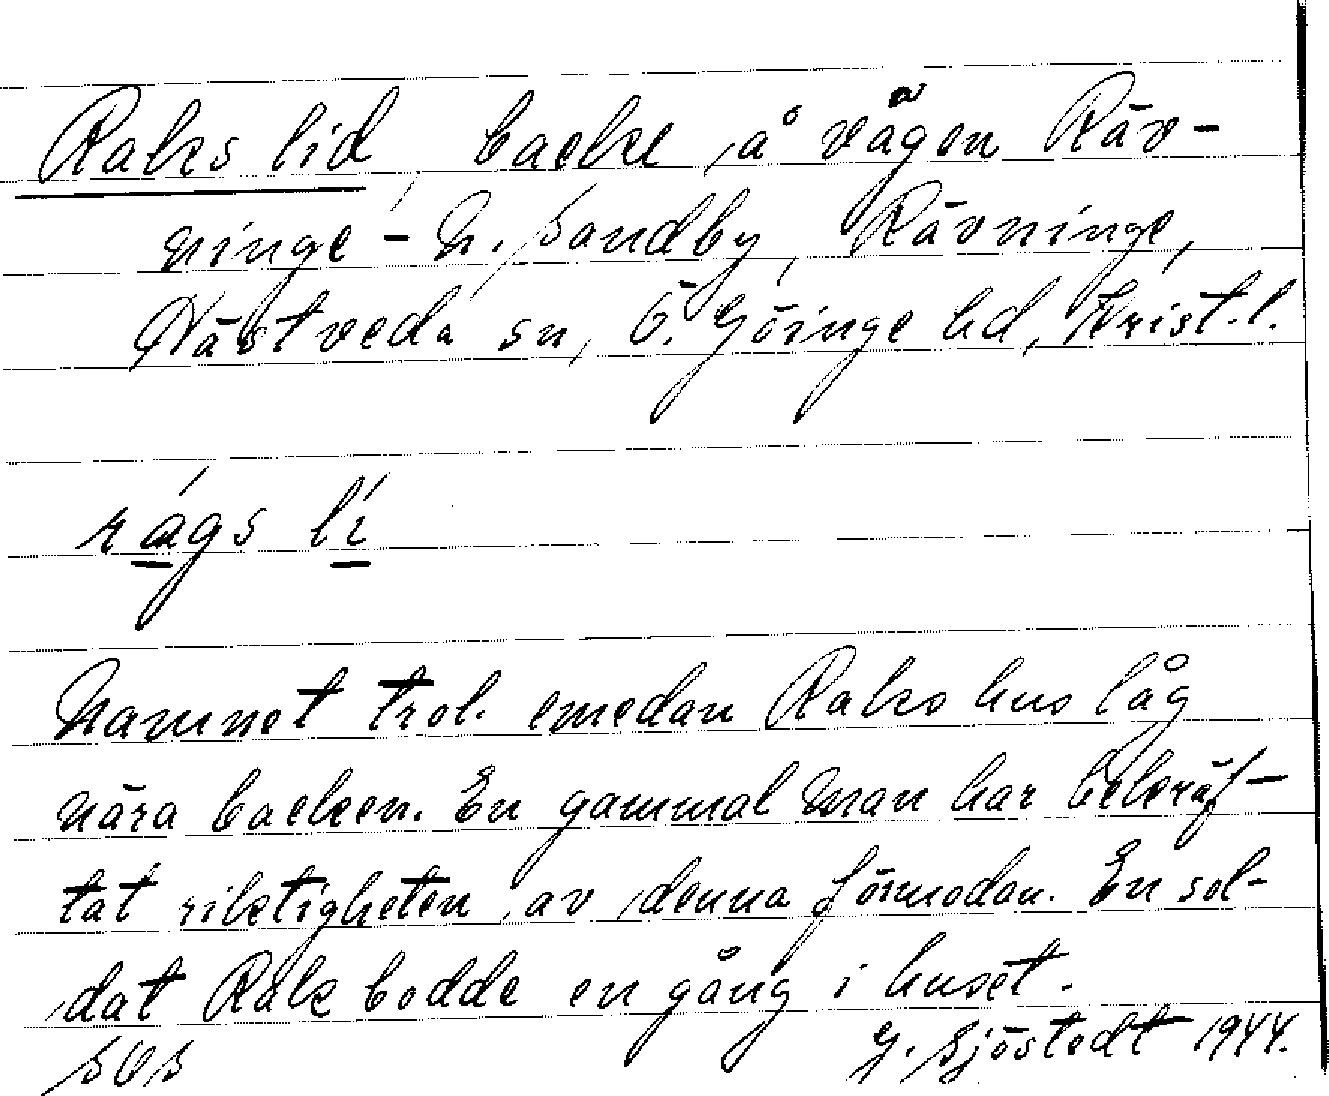 Raks lid, backe å vägen Räv-
ninge - N. Sandby, Rävninge,
Hästveda sn, Ö. Göinge hd, Krist. l.
rágs lí
Namnet trol. emedan Raks hus låg
nära backen. En gammal man har bekräf-
tat riktigheten av denna förmodan. En sol-
dat Rak bodde en gång i huset.
SOS G. Sjöstedt 1944.